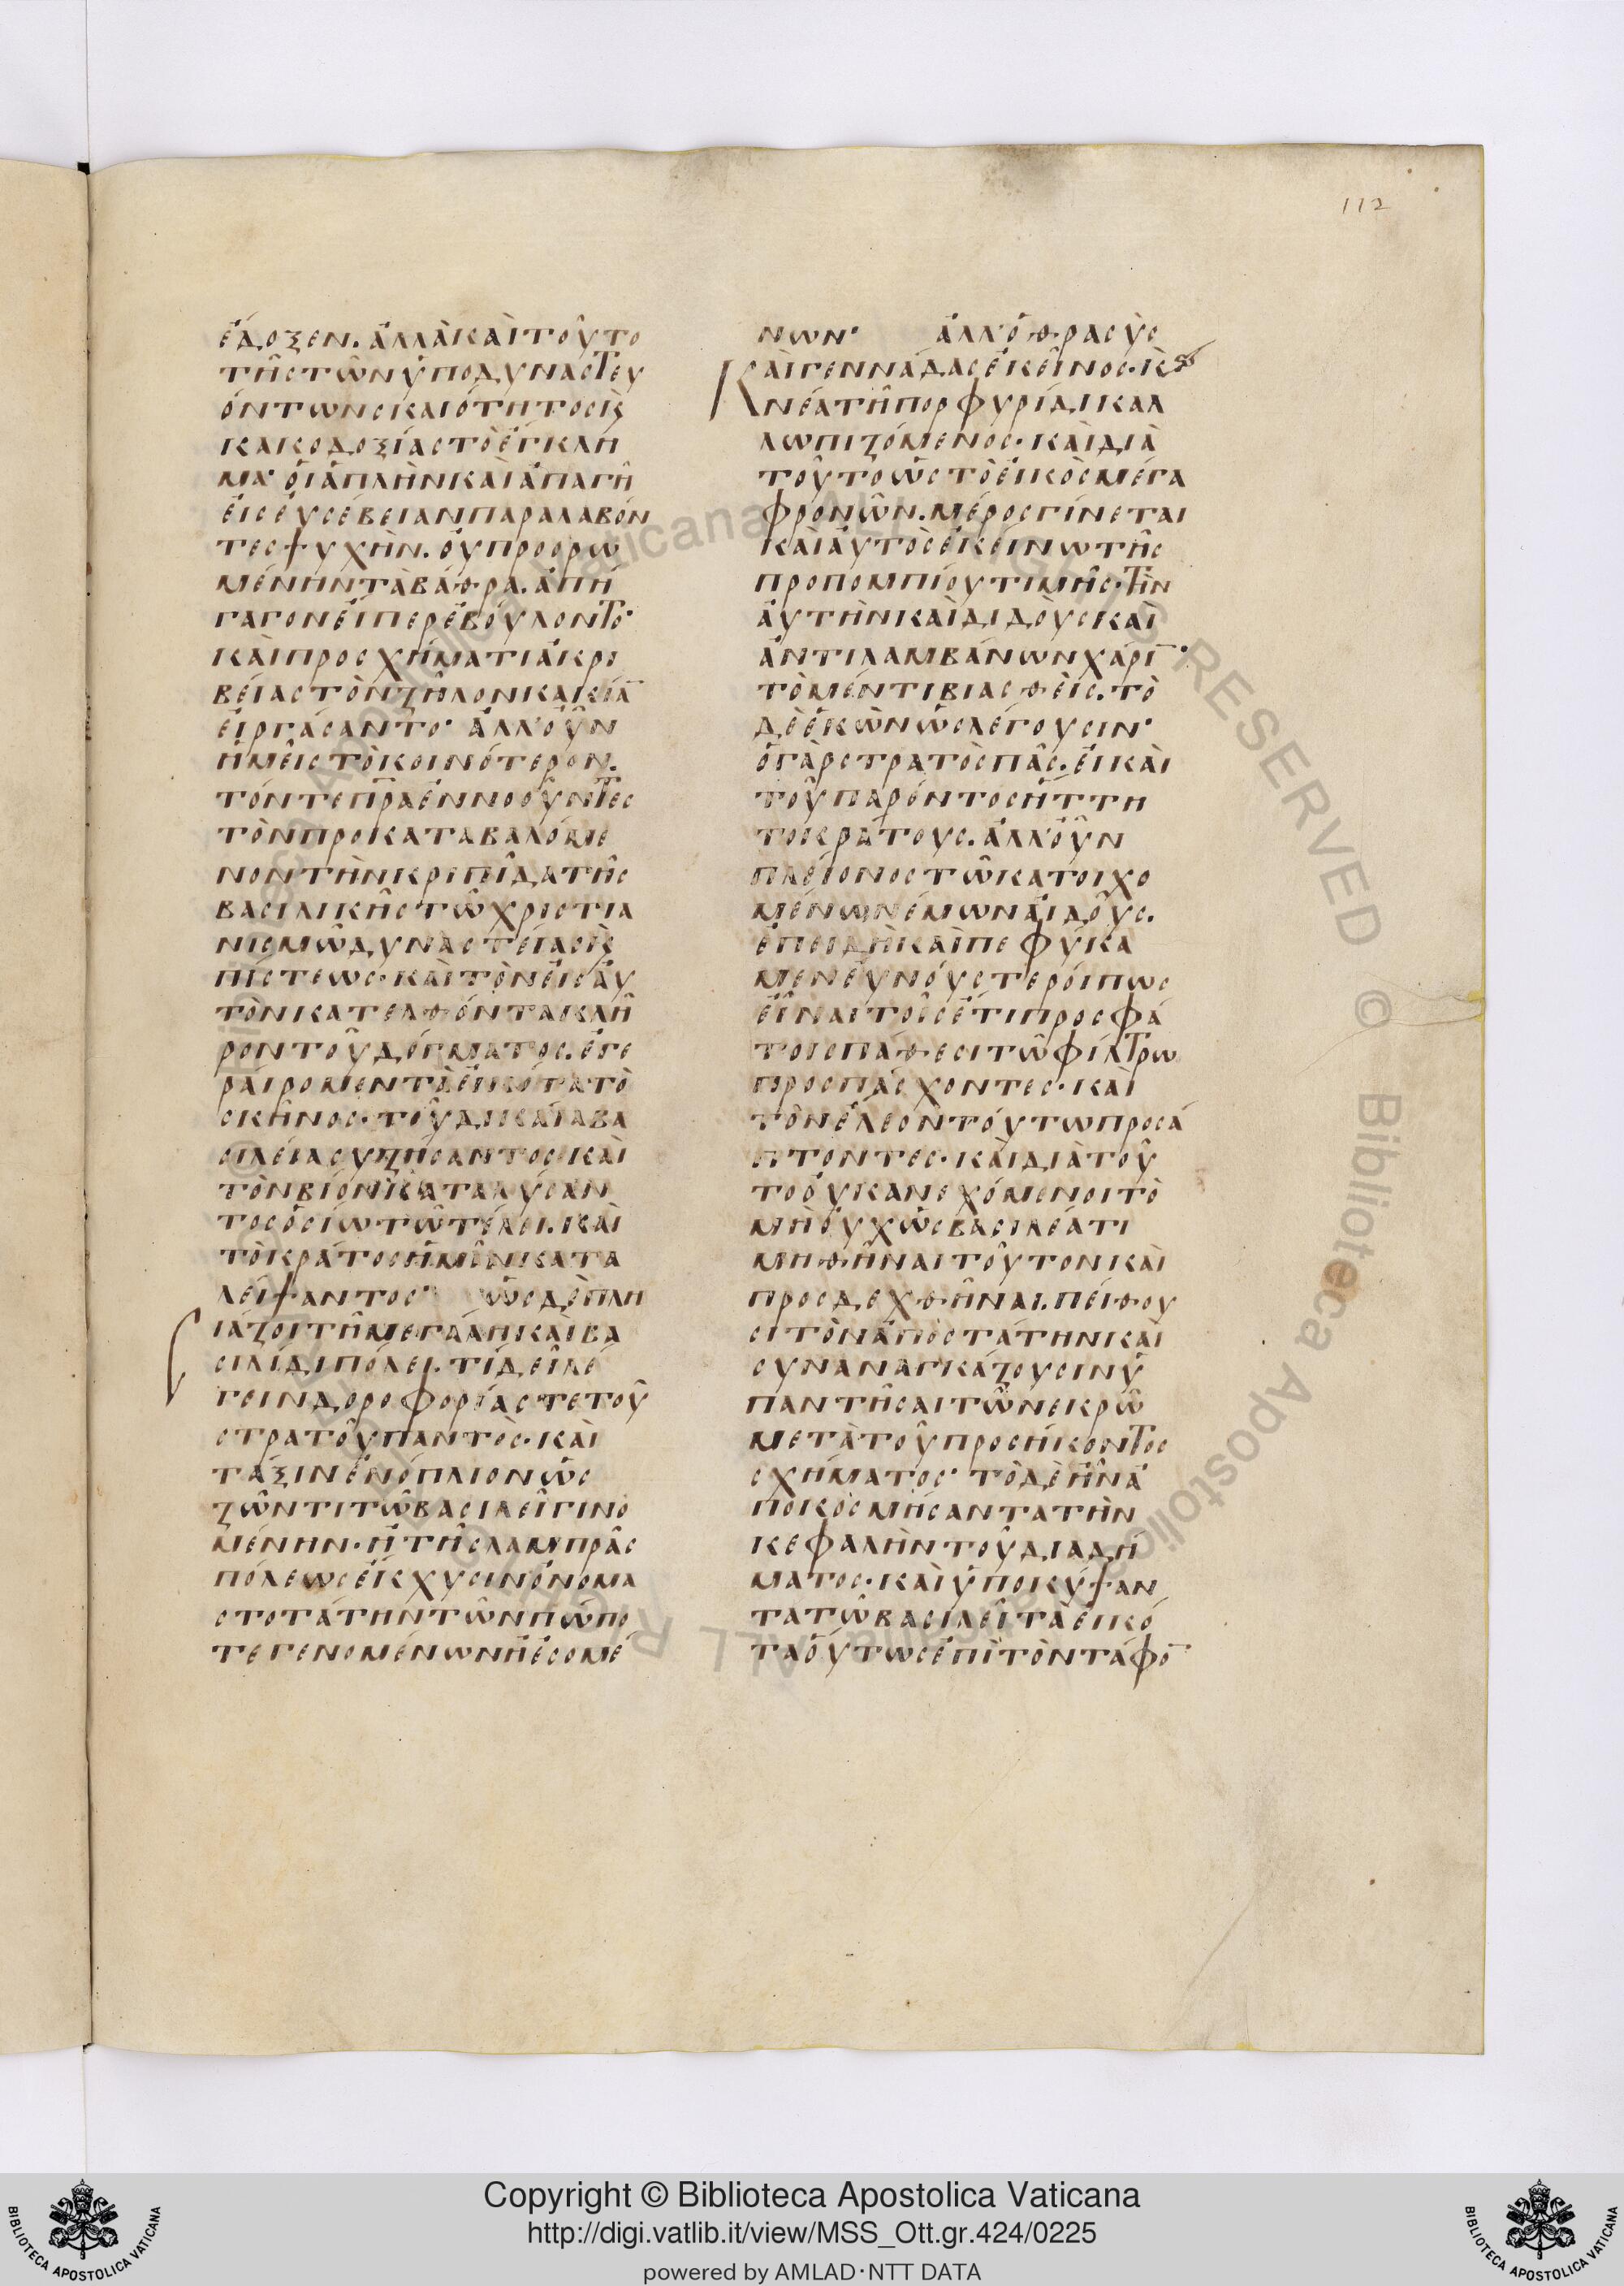 112
ἔδοξεν. ἀλλὰ καὶ τοῦτο
τῆς τῶν ὑποδυναστευ
όντων σκαιότητος κ(αὶ)
κακοδοξίας τὸ ἔγκλη
μα· οἳ ἁπλῆν καὶ ἁπαγῆ
εἰς εὐσέβειαν παραλαβόν
τες ψυχὴν. οὐ προορω
μένην τὰ βάθρα. ἀπή
γαγον εἵπερ ἐβούλοντο·
καὶ προσχήματι ἀκρι
βείας τὸν ζῆλον κακία(ν)
εἰργάσαντο· ἀλλ' οὖν
ἡμεῖς τὸ κοινότερον.
τόν τε π(ατέ)ρα ἐννοοῦντες
τὸν προκαταβαλόμε
νον τὴν κρηπῖδα τῆς
βασιλικῆς τῶ χριστια
νισμῶ δυναστείας κ(αὶ)
πίστεως· καὶ τὸν εἰς αὐ
τὸν κατελθόντα κλῆ
ρον τοῦ δόγματος. ἐγε
ραίρομεν τὰ εἰκότα τὸ
σκῆνος· τοῦ δικαία βα
σιλεία συζήσαντος καὶ
τὸν βίον καταλύσαν
τος ὁσίω τῶ τέλει. καὶ
τὸ κράτος ἡμῖν κατα
λείψαντος· ὡς δὲ πλη
ιάζοι τῆ μεγάλη καὶ βα
σιλίδι πόλει. τί δεῖ λέ
γειν δορυφορίας τε τοῦ
στρατοῦ παντὸς· καὶ
τάξιν ἐνόπλιον ὡς
ζῶντι τῶ βασιλεῖ γινο
μένην· ἢ τῆς λαμπρᾶς
πόλεως ἔκχυσιν ὀνομα
στοτάτην τῶν πώπο
τε γενομένων ἢ ἐσομέ
νων· ἀλλ' ὁ θρασὺς
καὶ γεννάδας ἐκεῖνος· κ(αὶ)
νέα τῆ πορφυρίδι καλ
λωπιζόμενος· καὶ διὰ
τοῦτο ὡς τὸ εἰκὸς μέγα
φρονῶν. μέρος γίνεται
καὶ αὐτὸς ἐκείνω τῆς
προπομπίου τιμῆς· τὴν
αὐτὴν καὶ διδοὺς καὶ
ἀντιλαμβάνων χάρι(ν)·
τὸ μέν τι βιασθεὶς. τὸ
δὲ ἑκὼν ὡς λέγουσιν·
ὁ γὰρ στρατὸς πᾶς. εἰ καὶ
τοῦ παρόντος ἡττη
το κράτους. ἀλλ' οὖν
πλείονος τῶ κατοιχο
μένω νέμων αἰδοῦς.
ἐπειδὴ καὶ πεφύκα
μεν εὐνούστεροί πως
εἶναι τοῖς ἔτι προσφά
τοις πάθεσι τῶ φίλτρω
προσπάσχοντες· καὶ
τὸν ἔλεον τούτω προσά
πτοντες· καὶ διὰ τοῦ
το οὐκ ἀνεχόμενοι τὸ
μὴ οὐχ ὡς βασιλέα τι
μηθῆναι τοῦτον καὶ
προσδεχθῆναι. πείθου
σι τὸν ἀποστάτην καὶ
συναναγκάζουσιν ὑ
παντῆσαι τῶ νεκρῶ
μετὰ τοῦ προσήκοντος
σχήματος· τὸ δὲ ἦν ἀ
ποκοσμήσαντα τὴν
κεφαλὴν τοῦ διαδή
ματος· καὶ ὑποκύψαν
τα τῶ βασιλεῖ τὰ εἰκό
τα οὕτως ἐπὶ τὸν τάφο(ν)
Copyright © Biblioteca Apostolica Vaticana
http://digi.vatlib.it/view/MSS_Ott.gr.424/0225
powered by AMLAD·NTT DATA
BIBLIOTECA APOSTOLICA VATICANA
BIBLIOTECA APOSTOLICA VATICANA